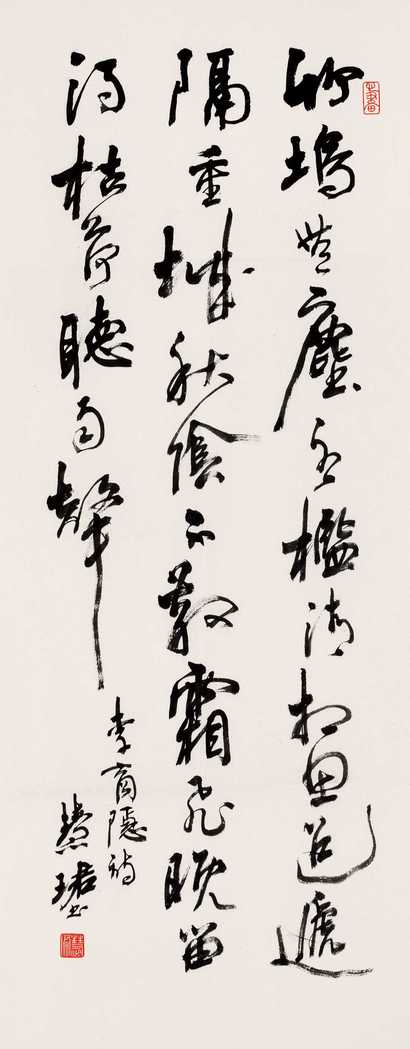 竹塢無塵水檻清相思迢遞
隔重城秋陰不散霜飛晚留
得枯荷聽雨聲
李商隱詩
慧珺書